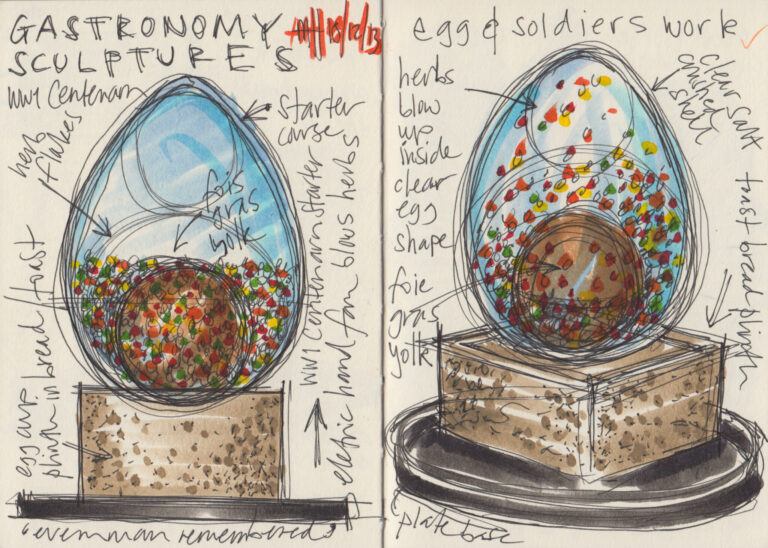 GASTRONOMY
SCULPTURES
18/12/13
WW1 Centenary
herb
flakes
starter
course
fois
gras
yolk
egg cup
plinth in bread/toast
WW1 Centenary starter
eletric hand fan blows herbs
"everyman remembered"
egg & soldiers work
herbs
blow
up
inside
clear
egg
shape
foie
gras
yolk
clear salt
crushed
shell
toast bread plinth
plate base